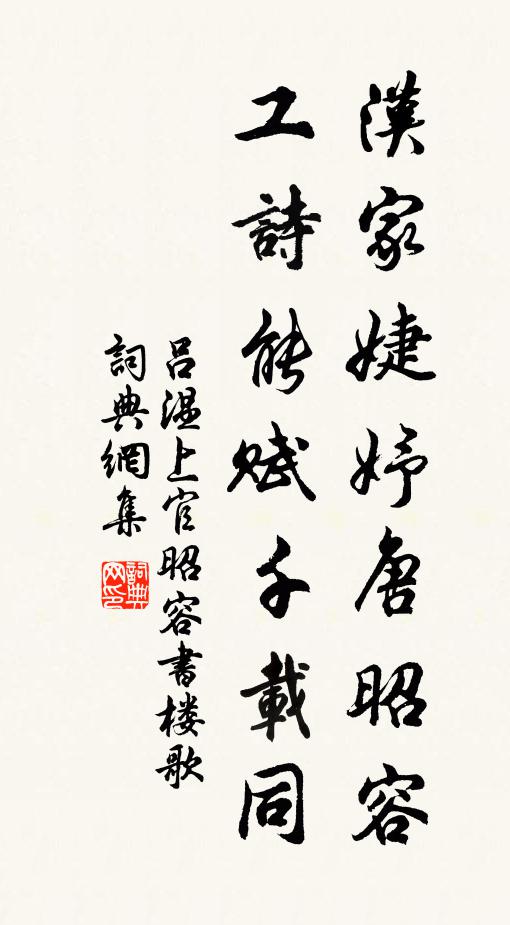 漢家婕妤唐昭容
工詩能賦千載同
吕温上官昭容書楼歌
詞典網集
詞典网印